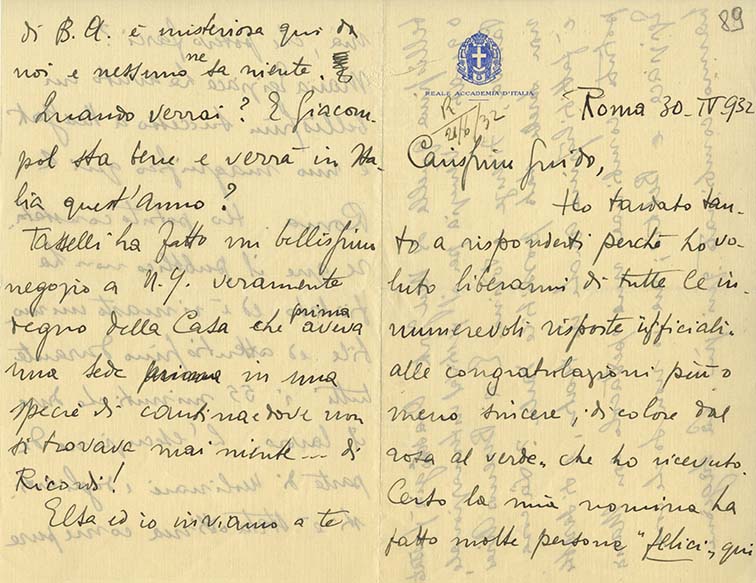 89
REALE ACCADEMIA D'ITALIA
R
28/6/32
Roma 30-IV 932
Carissimo Guido,
Ho tardato tan-
to a risponderti perchè ho vo-
luto liberarmi di tutte le in-
numerevoli risposte "ufficiali"
alle congratulazioni più o
meno sincere, "di colore dal
rosa al verde" che ho ricevuto.
Certo la mia nomina ha
fatto molte persone "felici" qui
di B.A. è misteriosa qui da
noi e nessuno ne sa niente.
Quando verrai? E Giacom-
pol sta bene e verrà in Ita-
lia quest'anno?
Tasselli ha fatto un bellissimo
negozio a N.Y. veramente
degno della Casa che prima aveva
una sede in una
specie di cantina e dove non
si trovava mai niente... di
Ricordi!
Elsa ed io inviamo a te